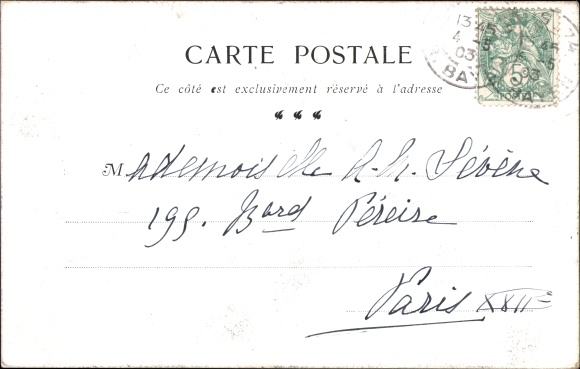 CARTE POSTALE
Ce côté est exclusivement réservé à l'adresse
Mademoiselle A. M. Sévène
199. Bard Péreire
Paris XVIIe
13 45
4 5
03
BA
45
5
03
5